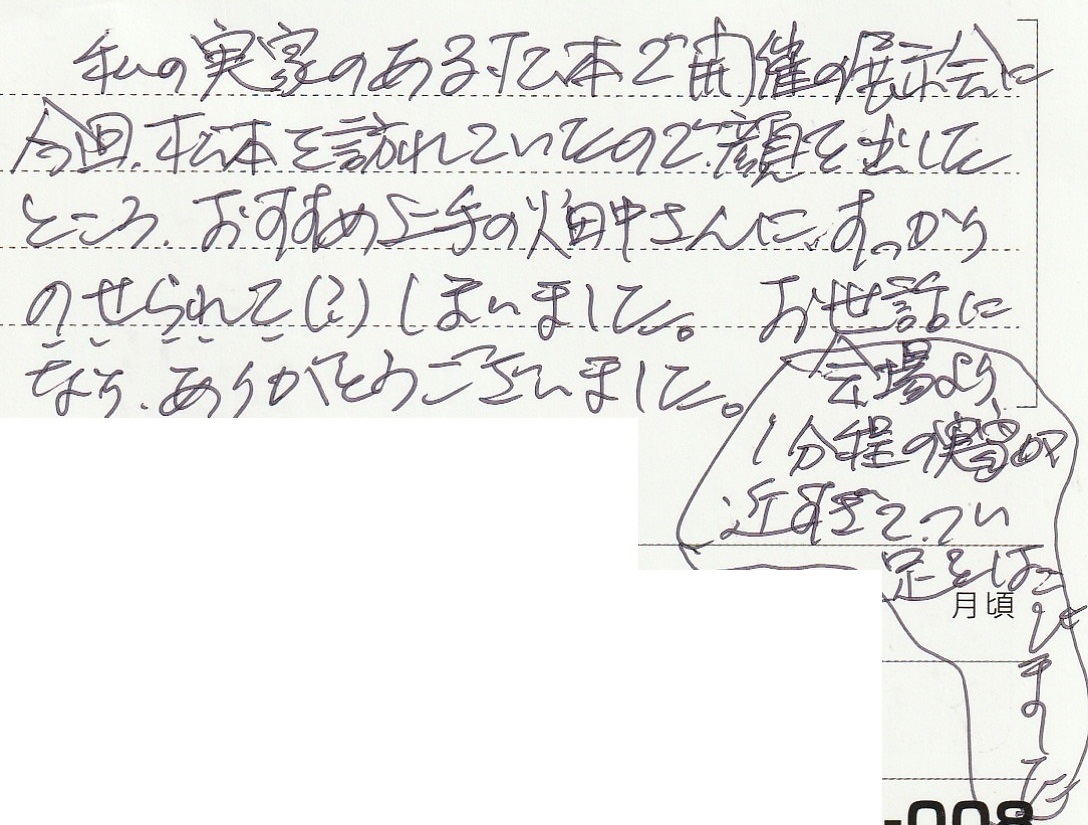 私の実家のある松本で開催の展示会に
今回、松本を訪れていたので、顔を出した
ところ、おすすめ上手の畑中さんに、すっかり
のせられて(?)しまいました。 お世話に
なり、ありがとうございました。
会場より、
1分程の実家が
近すぎて、つい
足をはこ
びました
月頃
-008